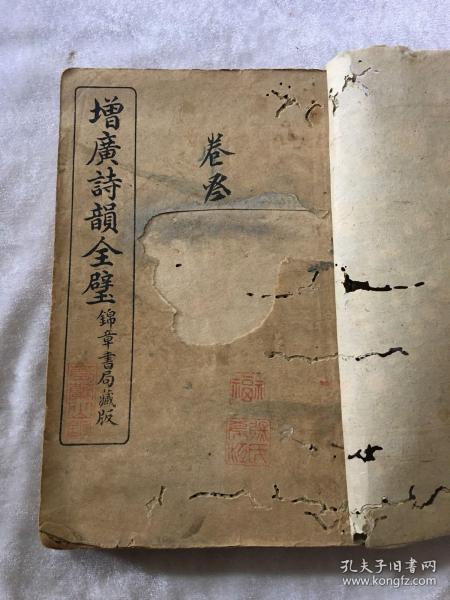 增廣詩韻全璧
錦章書局藏版
卷叄
孔夫子旧书网
www.kongfz.com